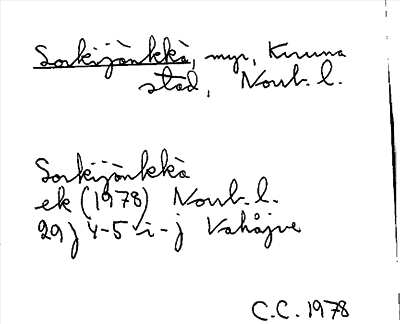 Sorkijänkkä, myr, Kiruna
stad, Norrb. l.
Sorkijänkkä
ek (1978) Norrb. l.
29J 4-5 i-j Vakåjve
C.C. 1978